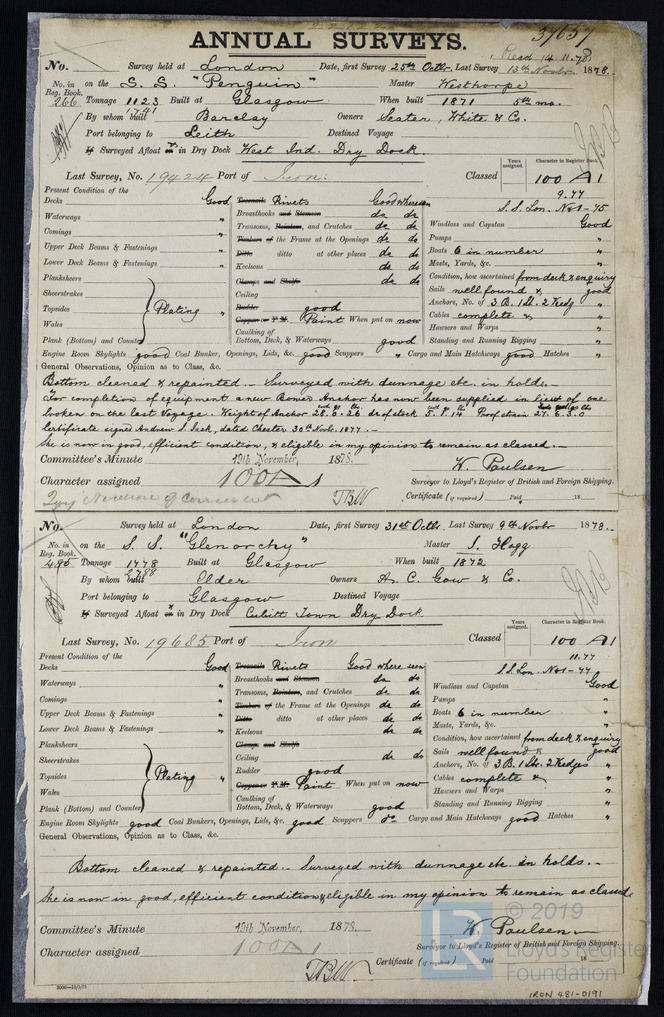 37657
ANNUAL SURVEYS.
Recd 14.11.78
No. Survey held at London Date, first Survey 25th Octbr. Last Survey 13th Novbr 1878.
No. in Reg. Book. on the S.S. "Penguin" Master Westhorpe
266 Tonnage 1123 Built at Glasgow When built 1871 5th mo.
1741
By whom built Barclay Owners Seater, White & Co.
Port belonging to Leith Destined Voyage
If Surveyed Afloat or in Dry Dock West Ind. Dry Dock.
Years assigned. Character in Register Book.
Last Survey, No. 19424 Port of Iron. Classed 100 A 1
9.77
S.S. Lon. No 1-75
Present Condition of the
Decks Good Treenails Rivets Good where seen
Waterways " Breasthooks and Stemson do do Windlass and Capstan Good
Comings " Transoms, Pointers, and Crutches do do Pumps "
Upper Deck Beams & Fastenings " Timbers of the Frame at the Openings do do Boats 6 in number "
Lower Deck Beams & Fastenings " Ditto ditto at other places do do Masts, Yards, &c. "
Planksheers Keelsons do do Condition, how ascertained from deck & enquiry
Sheerstrakes Clamps and Shelfs do do Sails well found & good
Topsides Plating " Ceiling Anchors, No. of 3 B. 1 St. 2 Kedg "
Wales Rudder good Cables complete & "
Copper or Y.M. Paint When put on now Hawsers and Warps "
Plank (Bottom) and Counter Caulking of Bottom, Deck, & Waterways good Standing and Running Rigging "
Engine Room Skylights good Coal Bunker, Openings, Lids, &c. good Scuppers " Cargo and Main Hatchways good Hatches "
General Observations, Opinion as to Class, &c.
Bottom cleaned & repainted.- Surveyed with dunnage etc. in holds.-
For completion of equipment a new Bower Anchor has now been supplied in lieu of one
broken on the last Voyage. Weight of Anchor 28.0.26 do of stock 5.1.14 Proof strain 27.6.3.0
Certificate signed Andrew S. Jack, dated Chester 30th Novbr. 1877.-
She is now in good, efficient condition, & eligible in my opinion to remain as classed.-
Committee's Minute 19th November, 1878. W. Paulsen
Character assigned 100 A 1 Surveyor to Lloyd's Register of British and Foreign Shipping.
TBW Certificate (if required) Paid 18
No. Survey held at London Date, first Survey 31st Octbr. Last Survey 9th Novbr 1878.
No. in Reg. Book. on the S.S. "Glenorchy" Master J. Hogg
495 Tonnage 1778 Built at Glasgow When built 1872
2788
By whom built Elder Owners A. C. Gow & Co.
Port belonging to Glasgow Destined Voyage
If Surveyed Afloat or in Dry Dock Cubitt Town Dry Dock.
Years assigned. Character in Register Book.
Last Survey, No. 19685 Port of Iron Classed 100 A 1
11.77
S.S. Lon. No 1-77
Present Condition of the
Decks Good Treenails Rivets Good where seen
Waterways " Breasthooks and Stemson do do Windlass and Capstan Good
Comings " Transoms, Pointers, and Crutches do do Pumps "
Upper Deck Beams & Fastenings " Timbers of the Frame at the Openings do do Boats 6 in number "
Lower Deck Beams & Fastenings " Ditto ditto at other places do do Masts, Yards, &c. "
Planksheers Keelsons do do Condition, how ascertained from deck & enquiry
Sheerstrakes Clamps and Shelfs Sails well found & good
Topsides Plating " Ceiling do do Anchors, No. of 3 B. 1 Str. 2 Kedges "
Wales Rudder good Cables complete & "
Copper or Y.M. Paint When put on now Hawsers and Warps "
Plank (Bottom) and Counter Caulking of Bottom, Deck, & Waterways good Standing and Running Rigging "
Engine Room Skylights good Coal Bunkers, Openings, Lids, &c. good Scuppers do Cargo and Main Hatchways good Hatches "
General Observations, Opinion as to Class, &c.
Bottom cleaned & repainted.- Surveyed with dunnage etc. in holds.-
She is now in good, efficient condition & eligible in my opinion to remain as classed.
Committee's Minute 19th November, 1878. W. Paulsen
Character assigned 100 A 1 Surveyor to Lloyd's Register of British and Foreign Shipping.
TBW Certificate (if required) Paid 18
© 2019
Lloyd's Register
Foundation
IRON 481-0191